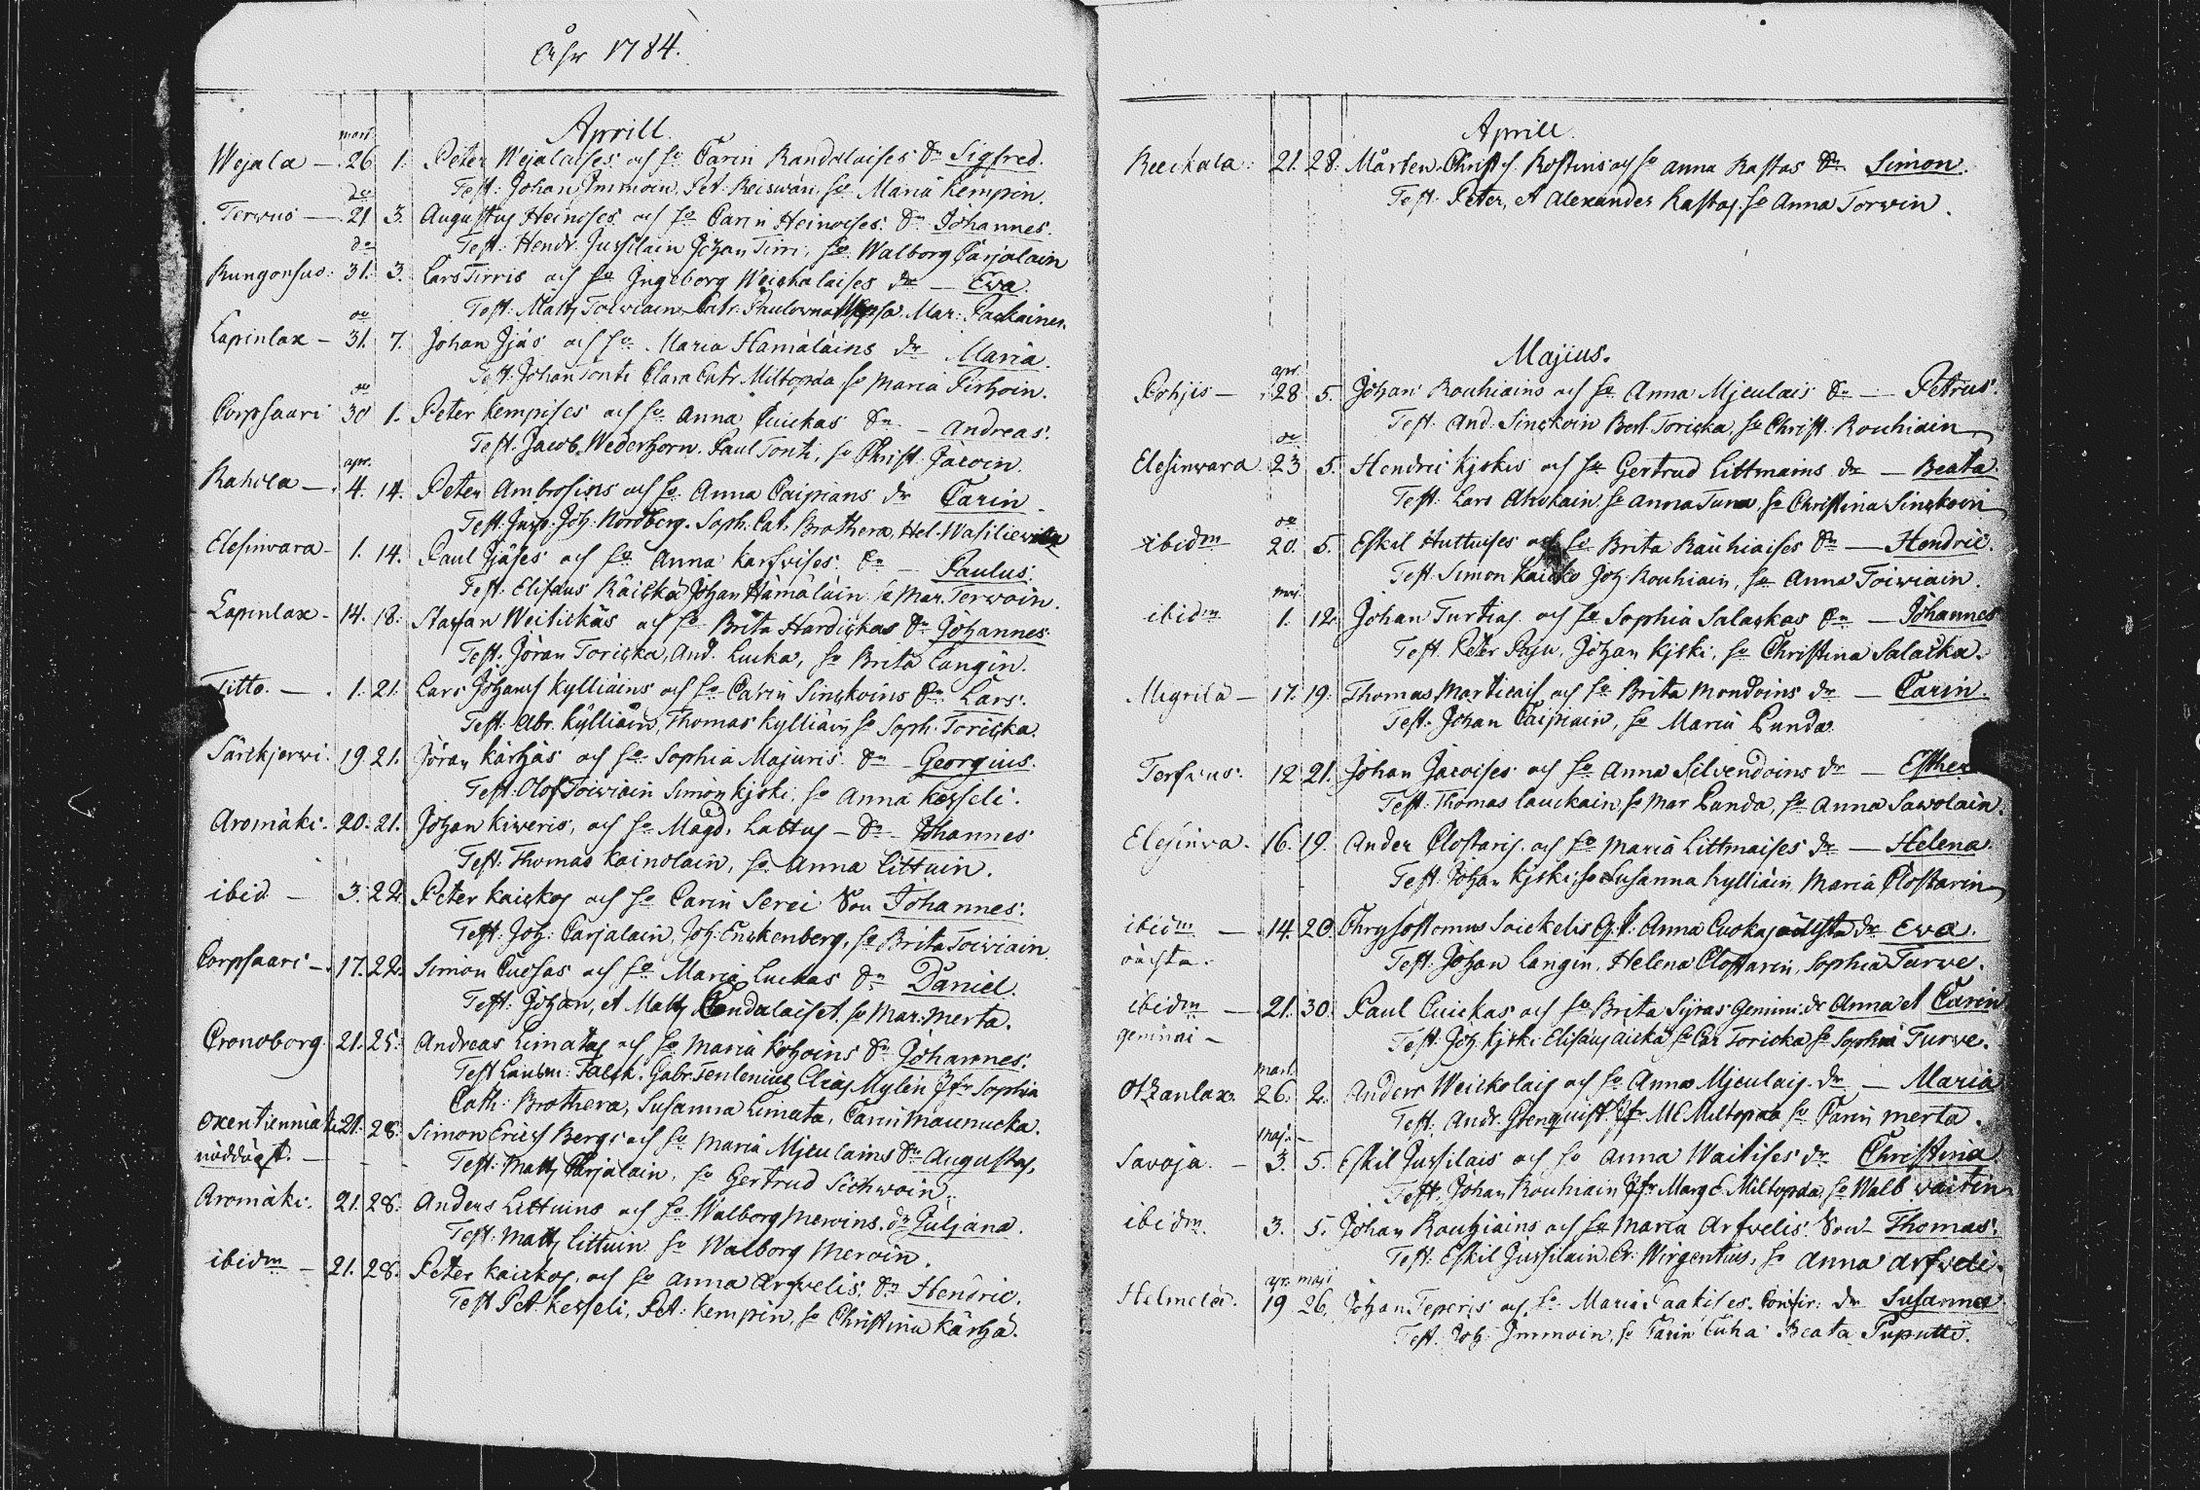 Åhr 1784.
Aprill.
mart.
Wejala — 26 1. Peter Wejalaises och h:o Carin Randalaises Sn Sigfred.
Test: Johan Immoin, Pet. Reiswän h:o Maria Kempin.
do
Terwus — 21 3. Augustus Heinoises och h:o Carin Heinoises Sn Johannes.
Test: Hendr. Jussilain Johan Tirri, h:o Walborg Carjalain
do
Kungonsuo: 31. 3. Lars Tirris och h:o Ingeborg Weickalaises dr — Ewa.
Test: Matts Toiwiain, Catr. Paulowna Mar: Packainen.
do
Lapinlax — 31. 7. Johan Ijäs och h:o Maria Hämäläins dr Maria.
Test: Johan Tonti Clara Catr Miltopæa h:o Maria Pirhoin.
do
Corpsaari 30 1. Peter Kempises och h:o Anna Cuickas Sn — Andreas.
Test: Jacob Wederhorn. Paul Tonti, h:o Christ: Jäwin.
apr.
Rahola — 4. 14. Peter Ambrosius och h:o Anna Caipians dr Carin
Test: Insp. Joh: Nordberg. Soph. Cat. Brothera, Hel. Wasiliewna
Elesinvara — 1. 14. Paul Ijäses och h:o Anna Karfwises Sn — Paulus.
Test: Elisæus Räickä Johan Hämäläin h:o Mar. Terwoin.
Lapinlax — 14. 18. Staffan Weitickäs och h:o Brita Hardickas Sn Johannes.
Test: Jöran Toricka, And. Lucka, h:o Brita Langin.
Titto. — 1. 21. Lars Johans Kylliäins och h:o Carin Sinckoins Sn Lars.
Test: Abr. Kylliäin, Thomas Kylliäin h:o Soph. Toricka.
Särckjerwi. 19. 21. Jöran Kärhäs och h:o Sophia Majuris Sn Georgius.
Test: Olof Toiwiain Simon Kjski. h:o Anna Kesseli.
Aromäki. 20. 21. Johan Kiweris, och h:o Magd. Lattus — Sn — Johannes
Test: Thomas Kainolain, h:o Anna Littuin.
ibid — 3. 22. Peter Kaickos och h:o Carin Serei Son Johannes.
Test: Joh: Carjalain, Joh: Enckenberg, h:o Brita Toiwiain.
Corpsaari — 17. 22. Simon Cuosas och h:o Maria Luckas Sn Daniel.
Test: Johan, et Matts Randalaiset. h:o Mar. Merta.
Cronoborg. 21. 25. Andreas Limatas och h:o Maria Kohoins Sn Johannes.
Test Falck. Gabr. Tenlenius Elias Mylén Jfr Sophia
Cath: Brothera, Susanna Limata, Carin Maunucka.
21. 28. Simon Ericss Bergs och h:o Maria Mjeulains Sn Augustus,
nöddöpt. — Test: Matts Carjalain, h:o Gertrud Sichwoin.
Aromäki. 21. 28. Anders Littuins och h:o Walborg Merwins. dr Juljana.
Test: Matts Littuin h:o Walborg Merwin.
ibidm — 21. 28. Peter Kaickos, och h:o Anna Arfwelis Sn Hendric.
Test Pet. Kesseli, Pet: Kempin, h:o Christina Kärhä.
Aprill.
21. 28. Mårten Christs Rostins och h:o Anna Rastas Sn Simon.
Test: Peter, et Alexander Rastas h:o Anna Torwin.
Majius.
apr.
Pohjis — 28 5. Johan Rouhiains och h:o Anna Mjeulais Sn — Petrus.
Test: And. Sinckoin Bert. Toricka, h:o Christ. Rouhiain
do
Elesinwara 23 5. Hendric Kjskis och h:o Gertrud Littmains dr — Beata.
Test: Lars h:o Anna Turva, h:o Christina Sinckoin
do
ibidm 20. 5. Eskil Huttuises och h:o Brita Rauhiaises Sn — Hendric.
Test. Simon Kaicko Joh. Rouhiain, h:o Anna Toiwiain.
maj.
ibidm 1. 12. Johan Turtias och h:o Sophia Salackas Sn — Johannes
Test. Peter Paju, Johan Kjski, h:o Christina Salacka.
Migrilä — 17. 19. Thomas Marticais och h:o Brita Mondoins dr — Carin.
Test: Johan Caipiain, h:o Maria Lunda
Terfwus. 12 21. Johan Jäwises och h:o Anna Silvendoins dr — Esther
Test: Thomas Lauckain, h:o Mar Lunda, h:o Anna Sawolain.
Elesinva. 16. 19. Ander Clostaris. och h:o Maria Littmaises dr — Helena.
Test: Johan Kjski: h:o Susanna Kylliäin Maria Clostarin
ibidm — 14. 20. Chrysostomus Soickelis Anna Cuoka dr Ewa.
oächta. Test: Johan Langin, Helena Clostarin, Sophia Turwe.
ibidm — 21. 30. Paul Cuickas och h:o Brita Syras Gemini. dr Anna et Carin
gemini — Test: Joh. Kjski h:o Car Toricka h:o Sophia Turwe.
mart.
Otzanlax. 26. 2. Anders Weickolais och h:o Anna Mjeulais. dr — Maria
Test: Andr. Stenquist. Jfr MC Miltopæa h:o Carin Merta.
maj. —
Savoja. — 3. 5. Eskil Jussilais och h:o Anna Waitises dr Christina
Test: Johan Rouhiain Jfr Marg C. Miltopæa h:o Walb Waitin
ibidm. 3. 5. Johan Rauhiains och h:o Maria Arfwelis Son Thomas.
Test: Eskil Jussilain, Er: Wirgentius, h:o Anna Arfweli.
apr. maji
Helmelä. 19 26. Johan Teperis och h:o Maria Taakises. dr Susanna
Test. Joh: Immoin, h:o Carin Cuha Beata Puputti.